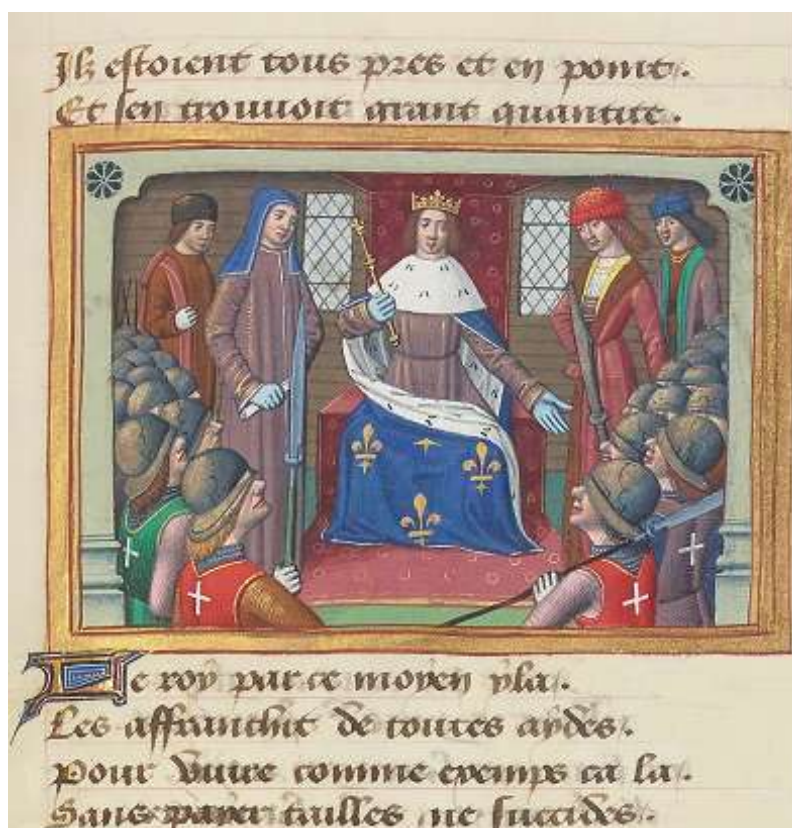 Ilz estoient tous pres et en point.
Et sen trouuoit grant quantite.
Le roy par ce moyen yla.
Les affranchit de toutes aydes.
Pour viure comme exemps ca la.
Sans paier tailles ne succides.